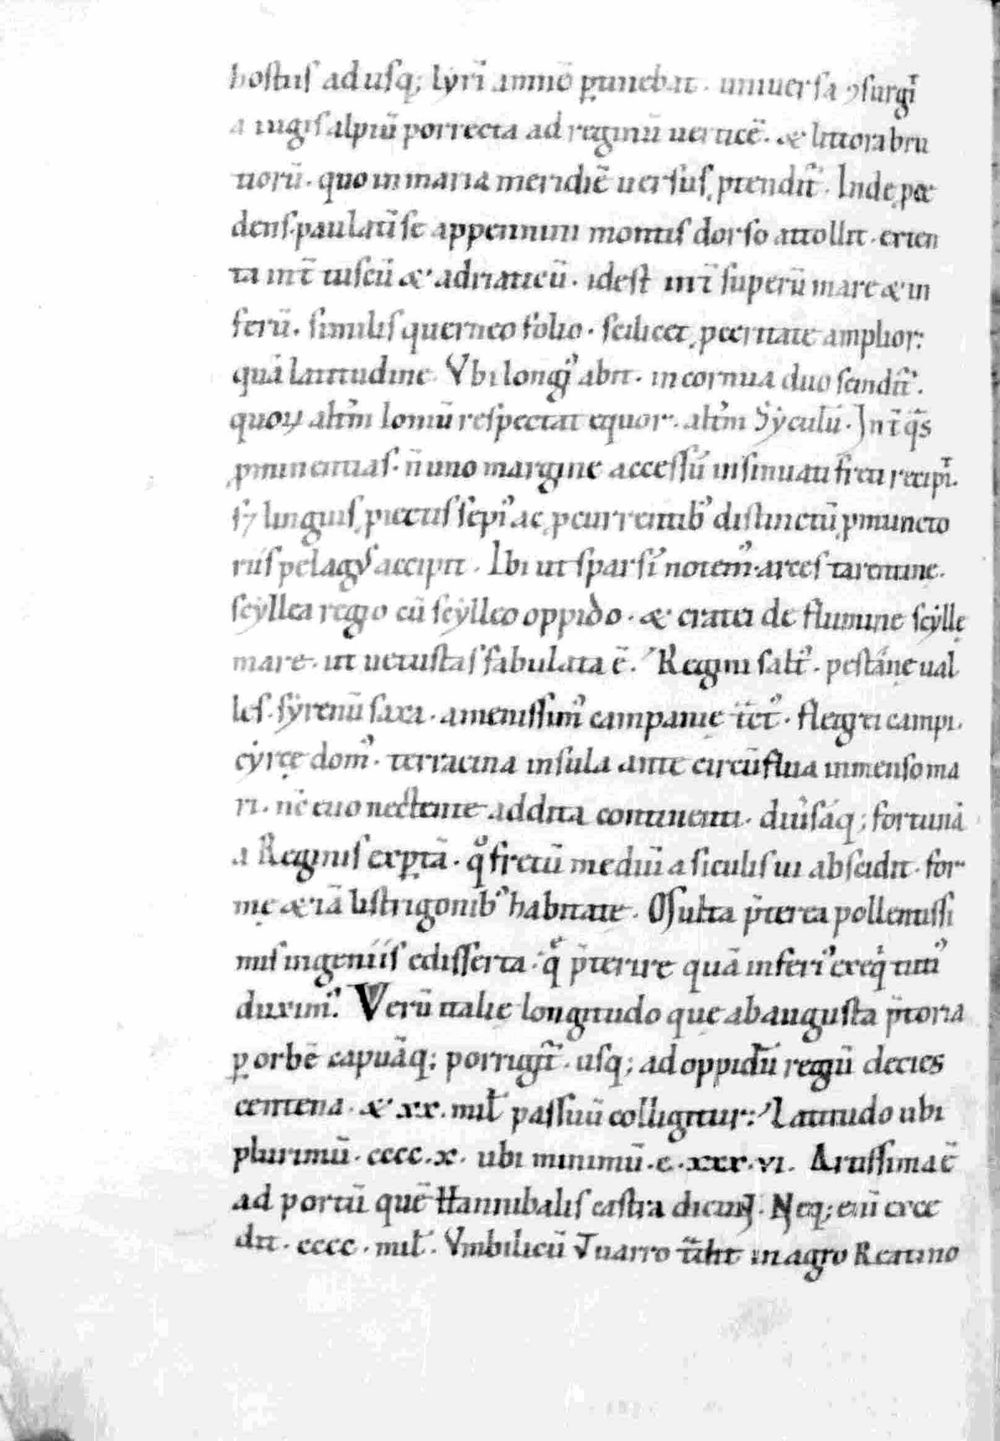 hostiis ad usq; lyrī amnē ꝑueniebat. uniuersa ꝯsurgiť
a iugis alpiū porrecta ad reginū uerticē. & littora bru
tiorū. quo in maria meridiē uersus ꝓtendiť. Inde ꝓce
dens paulatī se appennini montis dorso attollit. exten
ta int̄ tuscū & adriaticū. idest int̄ superū mare & in
ferū. similis querneo folio. scilicet ꝓceritate amplior:
quā latitudine. Vbi longi᾽ abit. in cornua duo scindiť.
quoꝝ altm̄ Ioniū respectat equor. altm̄ Syculū. In t̄ q̄s
ꝓminentias. n̄ uno margine accessū insinuati freti recipiť.
sꝫ linguis ꝓiectis sepi᾽ ac ꝓcurrentib᾽ distinctū ꝓmuncto
riis pelag᾽ accipit. Ibi ut sparsī notem᾽. arces tarentine.
scẏllea regio cū scẏlleo oppido. & crater de flumine scẏllę
mare. ut uetustas fabulata ē. Regini salt᾽. pestanę ual
les. sẏrenū saxa. amenissim᾽ campanię tct᾽. flegrei campi.
cẏrcę dom᾽. terracina insula ante circūflua inmenso ma
ri. nc̄ euo nectente addita continenti. diuīsāq; fortunā
a Reginis exꝑtā. qͦ fretū mediū a siculis ui abscidit. for
mię & iā listrigonib᾽ habitate. Osulta p̄terea pollentissi
mis ingeniis edisserta. q̄ p̄terire quā inferi᾽ exeq̇ tutī᾽
duxim᾽. Verū italię longitudo quę ab augusta p̄toria
ꝑ orbē capuāq; porrigiť. usq; ad oppidū regiū decies
centena. & xx. mil̄ passuū colligitur: Latitudo ubi
plurimū. cccc.x. ubi minimū. c.xxx.vi. Artissima ē
ad portū quē Hannibalis castra dicunt. Neq; eni exce
dit. cccc. mil̄. Vmbilicū ut uarro t̄dit in agro Reatino